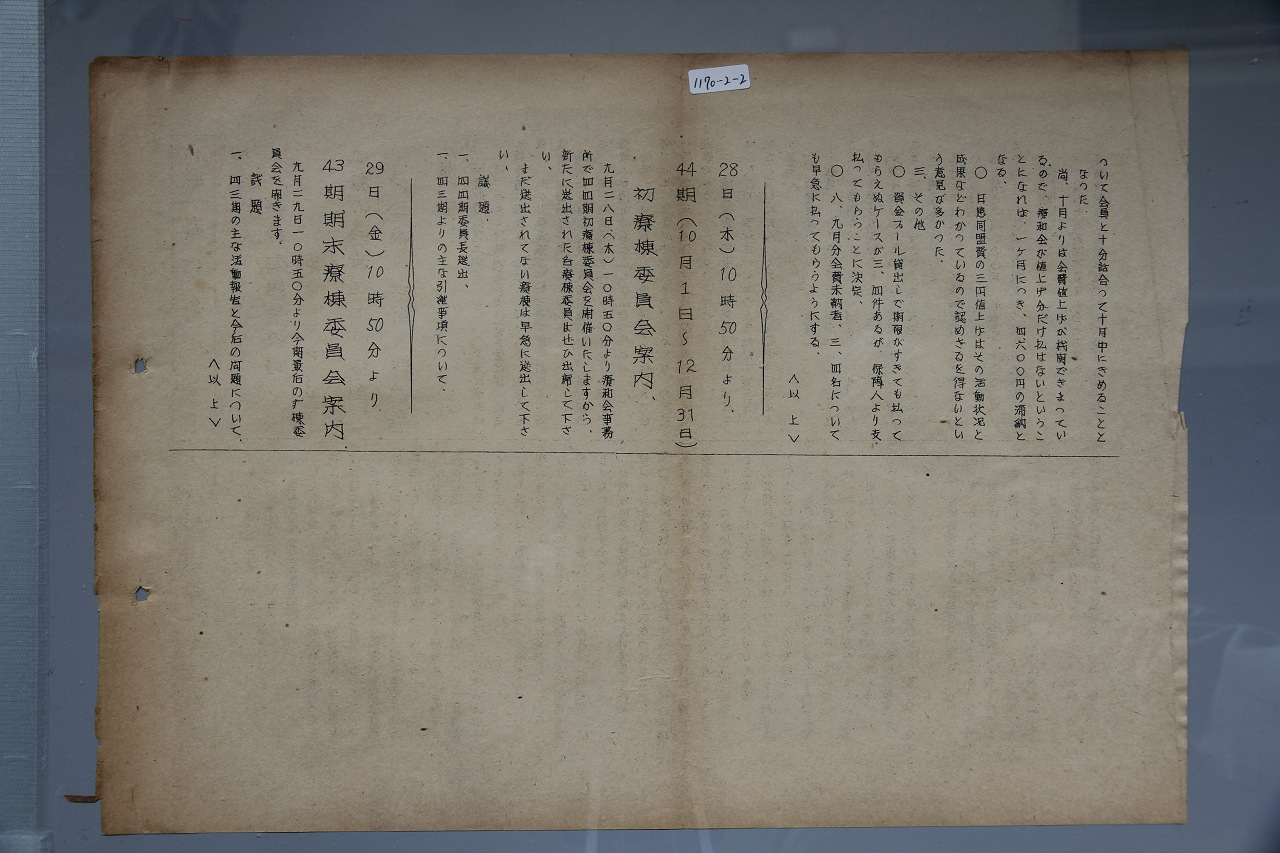 1170-2-2
ついて会員と十分話合って十月中にきめることと
なった
尚、十月よりは会費値上げが機関できまってい
るので、療和会が値上げ分だけ払はないというこ
とになれば、一ヶ月につき、四六〇〇円の滞納と
なる、
〇 日患同盟費の三円値上げはその活動状況と
成果などわかっているので認めざるを得ないとい
う意見が多かった、
三、その他
〇 資金プール貸出しで期限がすぎても払って
もらえぬケースが三、四件あるが、保障人より支
払ってもらうことに決定、
〇 八、九月分会費未納者、三、四名について
も早急に払ってもらうようにする、
＜以上＞
28日（木）10時50分より、
44期（10月1日～12月31日）
初療棟委員会案内、
九月二八日（木）一〇時五〇分より療和会事務
所で四四期初療棟委員会を開催いたしますから、
新たに選出された各療棟委員はぜひ出席して下さ
い、
まだ選出されてない療棟は早急に選出して下さ
い、
議題、
一、四四期委員長選出、
一、四三期よりの主な引継事項について、
29日（金）10時50分より
43期期末療棟委員会案内、
九月二九日一〇時五〇分より今期最后の療棟委
員会を開きます、
議題
一、四三期の主な活動報告と今后の問題について、
＜以上＞